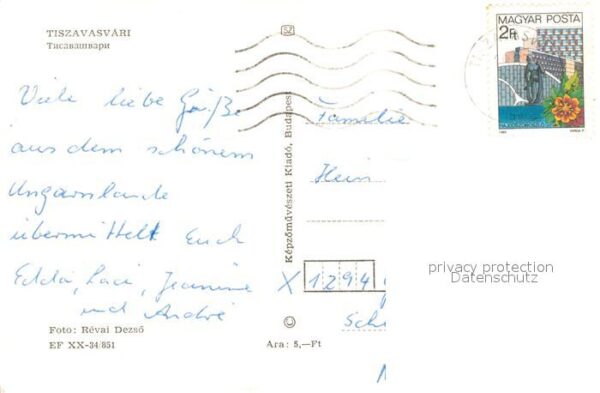 TISZAVASVÁRI
Тисавашвари
Viele liebe Grüße
aus dem schönem
Ungarnlande
übermittelt Euch
Edda, Laci, Jeanine
und André
Foto: Révai Dezső
EF XX-34/851
Képzőművészeti Kiadó, Budapest
Ára: 5,—Ft
MAGYAR POSTA
2Ft
Familie
Hein
X 1294
Sch
privacy protection
Datenschutz